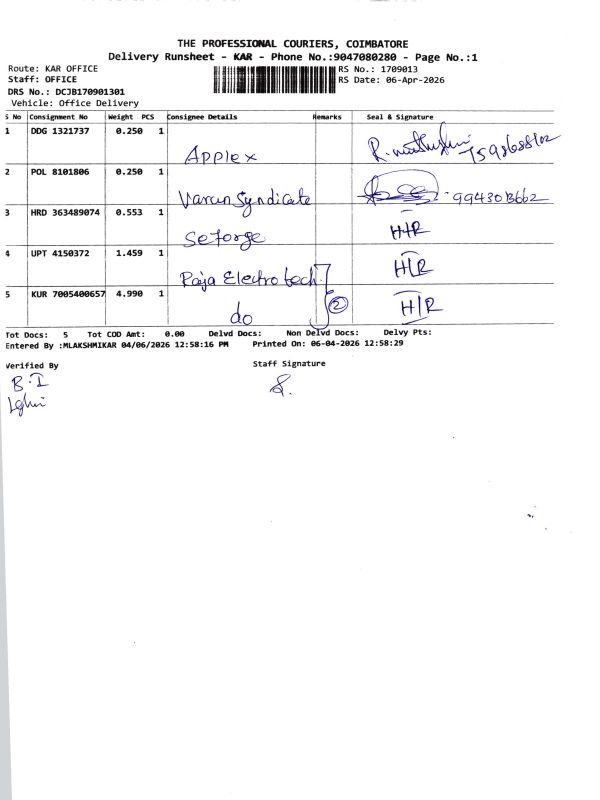 THE PROFESSIONAL COURIERS, COIMBATORE
Delivery Runsheet - KAR - Phone No.:9047080280 - Page No.:1
Route: KAR OFFICE RS No.: 1709013
Staff: OFFICE RS Date: 06-Apr-2026
DRS No.: DCJB170901301
Vehicle: Office Delivery
S No Consignment No Weight PCS Consignee Details Remarks Seal & Signature
1 DDG 1321737 0.250 1
Applex
2 POL 8101806 0.250 1
Varun Syndicate 9943013662
3 HRD 363489074 0.553 1
Seforge H/R
4 UPT 4150372 1.459 1 H/R
Raja Electro tech
5 KUR 7005400657 4.990 1 2 H/R
do
Tot Docs: 5 Tot COD Amt: 0.00 Delvd Docs: Non Delvd Docs: Delvy Pts:
Entered By :MLAKSHMIKAR 04/06/2026 12:58:16 PM Printed On: 06-04-2026 12:58:29
Verified By Staff Signature
B.I